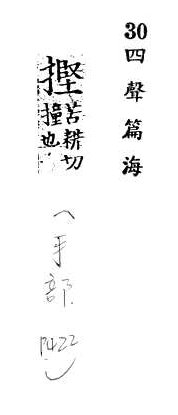 30四聲篇海
摼
苦耕切
撞也
(手部 P422)